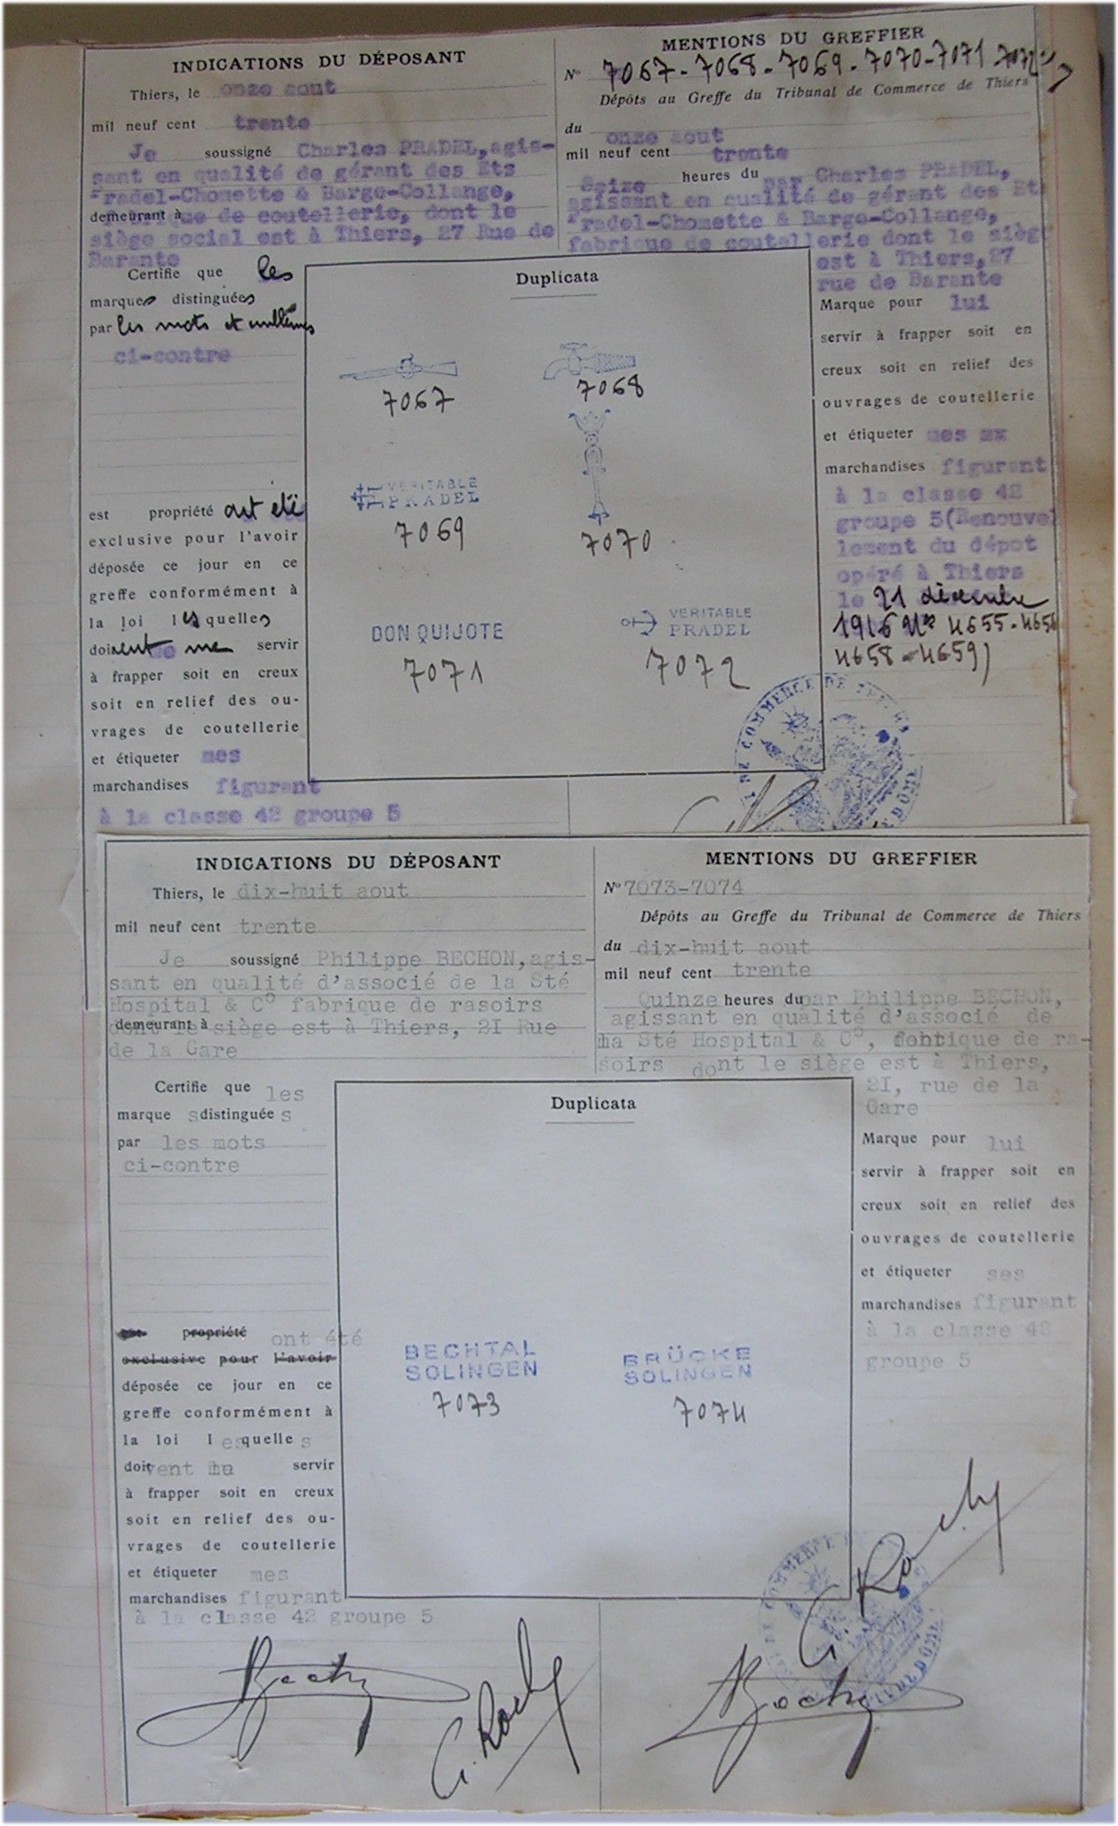 INDICATIONS DU DÉPOSANT
Thiers, le onze aout
mil neuf cent trente
Je soussigné Charles PRADEL, agis-
sant en qualité de gérant des Ets
Pradel-Chomette & Barge-Collange,
demeurant à fabrique de coutellerie, dont le
siège social est à Thiers, 27 Rue de
Barante
Certifie que les
marques distinguées
par les mots et emblèmes
ci-contre
est propriété ont été
exclusive pour l'avoir
déposée ce jour en ce
greffe conformément à
la loi lesquelles
doivent me servir
à frapper soit en creux
soit en relief des ou-
vrages de coutellerie
et étiqueter mes
marchandises figurant
à la classe 42 groupe 5
Duplicata
7067
7068
VERITABLE
PRADEL
7069
7070
DON QUIJOTE
7071
VERITABLE
PRADEL
7072
MENTIONS DU GREFFIER
N° 7067-7068-7069-7070-7071-7072
Dépôts au Greffe du Tribunal de Commerce de Thiers
du onze aout
mil neuf cent trente
Seize heures du par Charles PRADEL,
agissant en qualité de gérant des Ets
Pradel-Chomette & Barge-Collange,
fabrique de coutellerie dont le siège
est à Thiers, 27
rue de Barante
Marque pour lui
servir à frapper soit en
creux soit en relief des
ouvrages de coutellerie
et étiqueter mes
marchandises figurant
à la classe 42
groupe 5 (Renouvel
lement du dépot
opéré à Thiers
le 21 décembre
1916 Nos 4655-4656
4658-4659)
INDICATIONS DU DÉPOSANT
Thiers, le dix-huit aout
mil neuf cent trente
Je soussigné Philippe BECHON, agis-
sant en qualité d'associé de la Sté
Hospital & C° fabrique de rasoirs
demeurant à dont le siège est à Thiers, 2I Rue
de la Gare
Certifie que les
marque s distinguée s
par les mots
ci-contre
est propriété ont été
exclusive pour l'avoir
déposée ce jour en ce
greffe conformément à
la loi lesquelle s
doivent servir
à frapper soit en creux
soit en relief des ou-
vrages de coutellerie
et étiqueter mes
marchandises figurant
à la classe 42 groupe 5
Duplicata
BECHTAL
SOLINGEN
7073
BRÜCKE
SOLINGEN
7074
MENTIONS DU GREFFIER
N° 7073-7074
Dépôts au Greffe du Tribunal de Commerce de Thiers
du dix-huit aout
mil neuf cent trente
Quinze heures du par Philippe BECHON,
agissant en qualité d'associé de
la Sté Hospital & C°, fabrique de ra-
soirs dont le siège est à Thiers,
2I, rue de la
Gare
Marque pour lui
servir à frapper soit en
creux soit en relief des
ouvrages de coutellerie
et étiqueter ses
marchandises figurant
à la classe 42
groupe 5
G. Roche
G. Roche